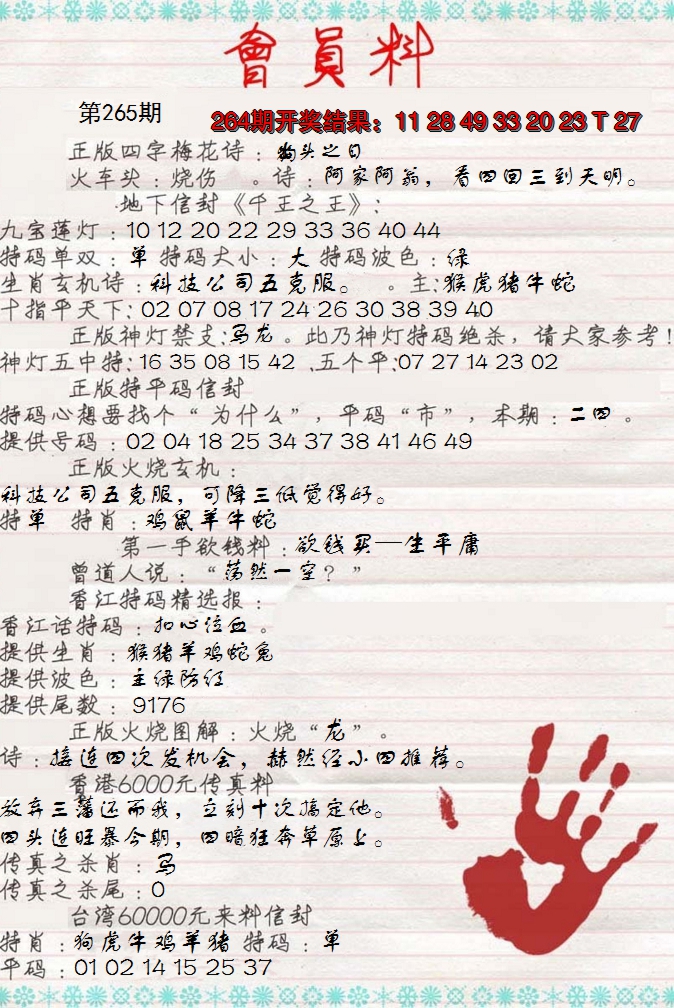 會員料
第265期
264期开奖结果：11 28 49 33 20 23 T 27
正版四字梅花诗：狗头之日
火车头：烧伤 。诗：阿家阿翁，看四回三到天明。
地下信封《千王之王》：
九宝莲灯：10 12 20 22 29 33 36 40 44
特码单双：单 特码大小：大 特码波色：绿
生肖玄机诗：科技公司五克服。 。主:猴虎猪牛蛇
十指平天下: 02 07 08 17 24 26 30 38 39 40
正版神灯禁支:马龙。此乃神灯特码绝杀，请大家参考!
神灯五中特: 16 35 08 15 42 .五个平:07 27 14 23 02
正版特平码信封
特码心想要找个“为什么”，平码“市”，本期：二四。
提供号码：02 04 18 25 34 37 38 41 46 49
正版火烧玄机：
科技公司五克服，可降三低觉得好。
特单 特肖：鸡鼠羊牛蛇
第一手欲钱料：欲钱买—生平庸
曾道人说：“荡然一空？”
香江特码精选报：
香江话特码：扣心泣血。
提供生肖：猴猪羊鸡蛇兔
提供波色：主绿防红
提供尾数：9176
正版火烧图解：火烧“龙”。
诗：接连四次发机会，赫然经小四推荐。
香港6000元传真料
放弃三藩还而我，立刻十次搞定他。
四头连旺暴今期，四暗狂奔草原上。
传真之杀肖：马
传真之杀尾：0
台湾60000元来料信封
特肖：狗虎牛鸡羊猪 特码：单
平码：01 02 14 15 25 37